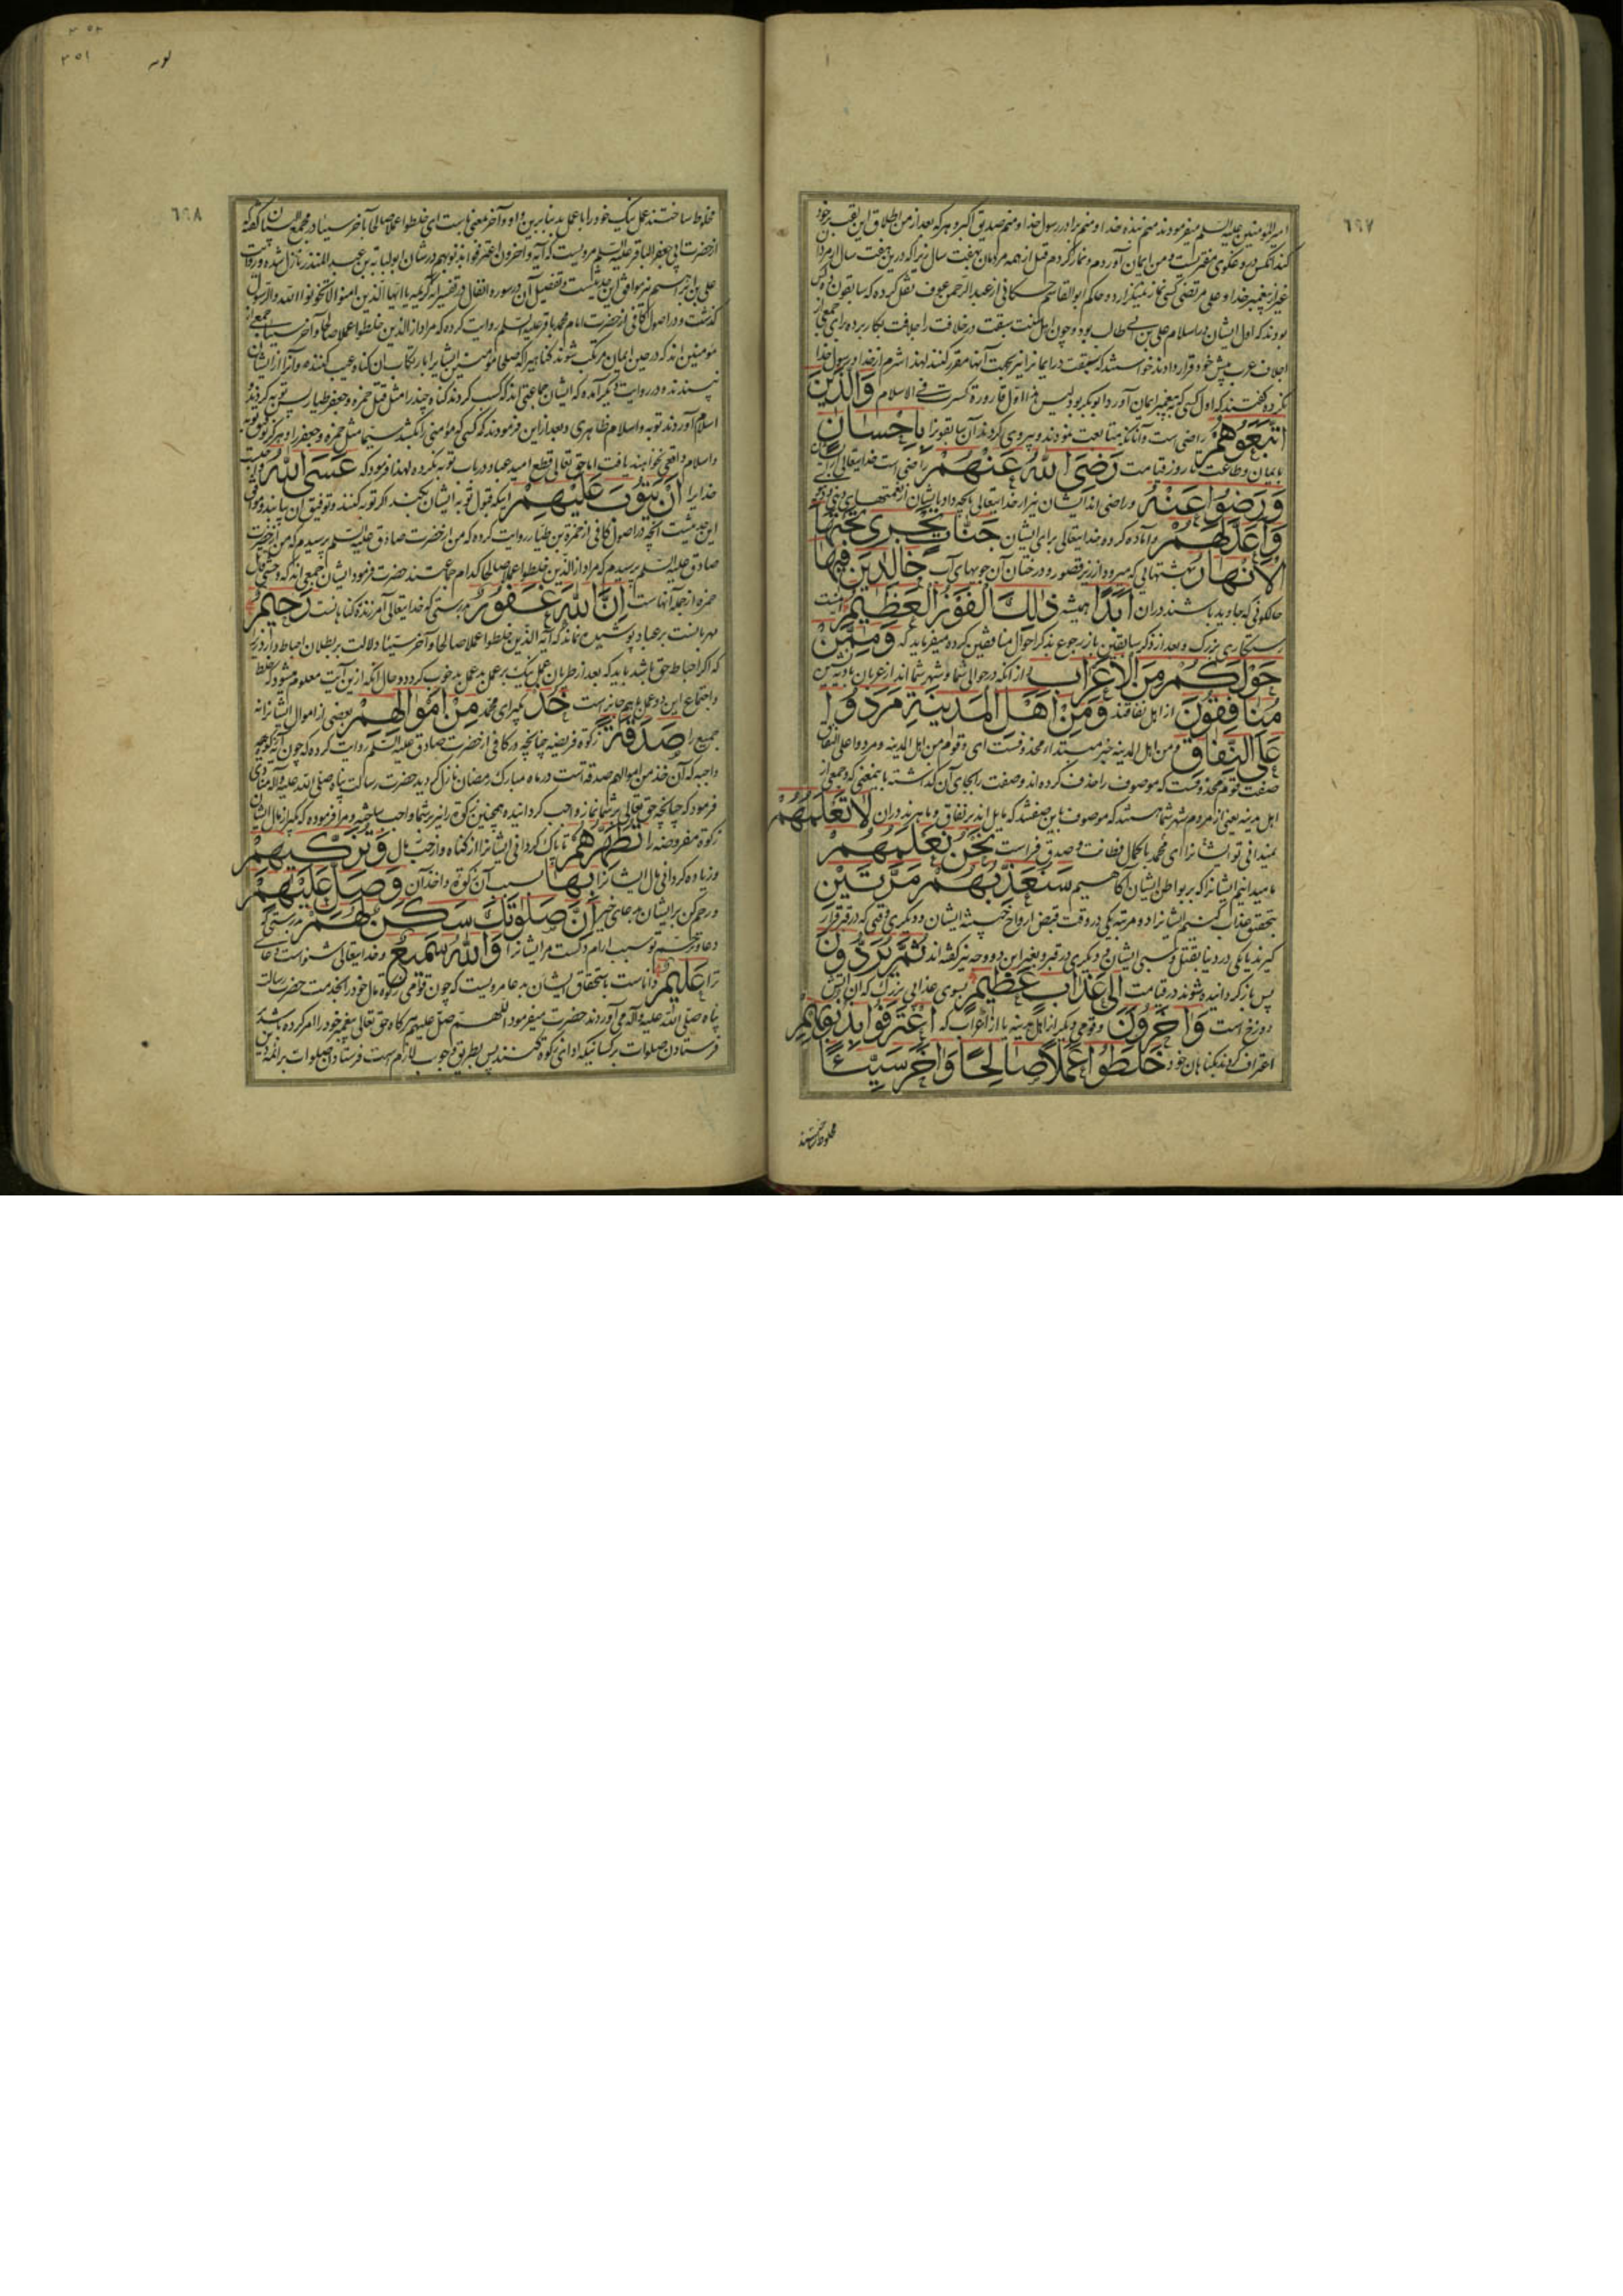 ٦٩٧
امیرالمومنین علیه السلم میفرمودند منم بنده خدا و منم برادر رسول خدا و منم صدیق اکبر و هر که بعد از من اطلاق این لقب بر خود
کند آنکس دروغگوی مفتریست و من ایمان آوردم و نماز گزاردم قبل از همه مردمان بهفت سال زیرا که درین هفت سال از مردان
غیر از پیغمبر خدا و علی مرتضی کسی نماز نمیگزارد و حاکم ابوالقاسم حسکانی از عبدالرحمن عوف نقل کرده که سابقون ده کس
بودند که اول ایشان در اسلام علی بن ابی طالب بود و چون اهل سنت سبقت در خلافت را جلافت بکار برده برای جمعی از
اجلاف عرب پیش خود قرار دادند خواستند که سبقت در ایمان را نیز بجهت آنها مقرر کنند لهذا شرم از خدا و رسول خدا
نکرده گفتند که اول کسی که به پیغمبر ایمان آورد ابوبکر بود لیس هذا اول قارورة کسرت فی الاسلام وَالَّذینَ
اتَّبَعُوهُمْ راضی است و آنانکه متابعت نمودند و پیروی کردند آن سابقون را بِاِحْسانٍ
بایمان و طاعت تا روز قیامت رَضِیَ اللّٰهُ عَنْهُمْ راضی است خدایتعالی از ایشان
وَرَضُوا عَنْهُ و راضی اند ایشان نیز از خدایتعالی بآنچه داد بایشان از نعمتهای دینی و دنیوی
وَاَعَدَّ لَهُمْ و آماده کرده خدایتعالی برای ایشان جَنّاتٍ تَجْری تَحْتَهَا
الْاَنْهارُ بهشتهائی که میرود از زیر قصور و درختان آن جویهای آب خالِدینَ فیها
حالکونی که جاوید باشند در ان اَبَداً همیشه ذٰلِکَ الْفَوْزُ الْعَظیمُ اینست
رستگاری بزرگ و بعد از ذکر سابقین باز رجوع بذکر احوال منافقین کرده میفرماید که وَمِمَّنْ
حَوْلَکُمْ مِنَ الْاَعْرابِ و از آنکه در حوالی شما و شهر شما اند از عربان بادیه نشین
مُنافِقُونَ از اهل نفاقند وَمِنْ اَهْلِ الْمَدینَةِ مَرَدُوا
عَلَی النِّفاقِ و من اهل المدینه خبر مبتدا محذوفست ای و قوم من اهل المدینه و مردوا علی النفاق
صفت قوم محذوفست که موصوف را حذف کرده اند و صفت را بجای آن گذاشته باینمعنی که و جمعی از
اهل مدینه یعنی از مردم شهر شما هستند که موصوف باین صفتند که مایل اند بر نفاق و ماهرند در ان لا تَعْلَمُهُمْ
نمیدانی تو ایشانرا ای محمد با کمال فطانت و صدق فراست نَحْنُ نَعْلَمُهُمْ
ما میدانیم ایشانرا که بر بواطن ایشان آگاهیم سَنُعَذِّبُهُمْ مَرَّتَیْنِ
بتحقیق عذاب کنیم ایشانرا دو مرتبه یکی در وقت قبض ارواح خبیثه ایشان و دیگری وقتی که در قبر قرار
گیرند یا یکی در دنیا بقتل و سبی ایشان و دیگری در قبر و بغیر این دو وجه نیز گفته اند ثُمَّ یُرَدُّونَ
پس باز گردانیده شوند در قیامت اِلیٰ عَذابٍ عَظیمٍ بسوی عذابی بزرگ که ان آتش
دوزخ است وَآخَرُونَ و قومی دیگر از اهل مدینه یا از اعراب که اعْتَرَفُوا بِذُنُوبِهِمْ
اعتراف کردند بگناهان خود خَلَطُوا عَمَلاً صالِحاً وَآخَرَ سَیِّئاً
مخلوط ساختند
٣٥٢
٣٥١
توبه
٦٩٨
مخلوط ساختند عمل نیک خود را با عمل بد بنابرین واو و آخر بمعنی باست ای خلطوا عملا صالحا بآخر سیئا در مجمع البیان گفته که
از حضرت ابی جعفر الباقر علیه السلم مرویست که آیه و آخرون اعترفوا بذنوبهم در شان ابو لبابه بن عبد المنذر نازل شده و روایت
علی بن ابراهیم نیز موافق این حدیث است و تفصیل آن در سوره انفال در تفسیر آیه کریمه یا ایها الذین امنوا لا تخونوا الله و الرسول
گذشت و در اصول کافی از حضرت امام محمد باقر علیه السلم روایت کرده که مراد از الذین خلطوا عملا صالحا و آخر سیئا جمعی از
مؤمنین اند که در حین ایمان مرتکب شوند گناهی را که صلحای مؤمنین ایشانرا بارتکاب ان گناه عیب کنند و آنرا از ایشان
نپسندند و در روایت دیگر آمده که ایشان جماعتی اند که کسب کردند گناه چند را مثل قتل حمزه و جعفر طیار پس توبه کردند و
اسلام آوردند توبه و اسلام ظاهری و بعد از این فرمودند که کسی که مؤمنی را بکشد سیما مثل حمزه و جعفر را هرگز توفیق توبه
و اسلام واقعی نخواهند یافت اما حق تعالی قطع امید عباد در باب توبه نکرده لهذا فرمود که عَسَی اللّٰهُ واجبست
خدایرا اَنْ یَتُوبَ عَلَیْهِمْ اینکه قبول توبه ایشان بکند اگر توبه کنند و توفیق ان بیابند و موافق
این حدیثست آنچه در اصول کافی از حمزة بن طیار روایت کرده که من از حضرت صادق علیه السلم پرسیدم که من از حضرت
صادق علیه السلم پرسیدم که مراد از الذین خلطوا عملا صالحا کدام جماعتند حضرت فرمود ایشان جمعی اند که وحشی قاتل
حمزه از جمله آنهاست اِنَّ اللّٰهَ غَفُورٌ بدرستی که خدایتعالی آمرزنده گناهانست رَحیمٌ
مهربانست بر عباد پوشیده نماند که آیه الذین خلطوا عملا صالحا و آخر سیئا دلالت بر بطلان احباط دارد زیرا
که اگر احباط حق باشد باید که بعد از طریان عمل نیک بر عمل بد عمل بد خوب گردد و حال آنکه ازین آیت معلوم میشود که خلط
و اجتماع این دو عمل با هم جایز است خُذْ بگیر ای محمد مِنْ اَمْوالِهِمْ بعضی از اموال ایشانرا نه
جمیع را صَدَقَةً زکوة فریضه چنانچه در کافی از حضرت صادق علیه السلم روایت کرده که چون آیه زکوة
واجبه که آن خذ من اموالهم صدقة است در ماه مبارک رمضان نازل گردید حضرت رسالت پناه صلی الله علیه و آله منادی
فرمود که چنانچه حق تعالی بر شما نماز واجب گردانیده همچنین زکوة را نیز بر شما واجب ساخته و مرا فرموده که بگیر از مال ایشان
زکوة مفروضه را تُطَهِّرُهُمْ تا پاک گردانی ایشانرا از گناه و از حب مال وَتُزَکّیهِمْ
و زیاده گردانی مال ایشانرا بِها بسبب آن زکوة و اخذ آن وَصَلِّ عَلَیْهِمْ
و رحم کن بر ایشان بدعای خیر اِنَّ صَلٰوتَکَ سَکَنٌ لَهُمْ بدرستی که
دعا و ترحم تو سبب آرام دلست مر ایشانرا وَاللّٰهُ سَمیعٌ و خدایتعالی شنواست دعای
ترا عَلیمٌ داناست باستحقاق ایشان بدعا مرویست که چون قومی زکوة مال خود را بخدمت حضرت رسالت
پناه صلی الله علیه و آله می آوردند حضرت میفرمود اللهم صل علیهم هر گاه حق تعالی پیغمبر خود را امر کرده باشد
فرستادن صلوات بر کسانیکه ادای زکوة کنند پس بطریق وجوب لازم است فرستادن صلوات بر ائمه دین